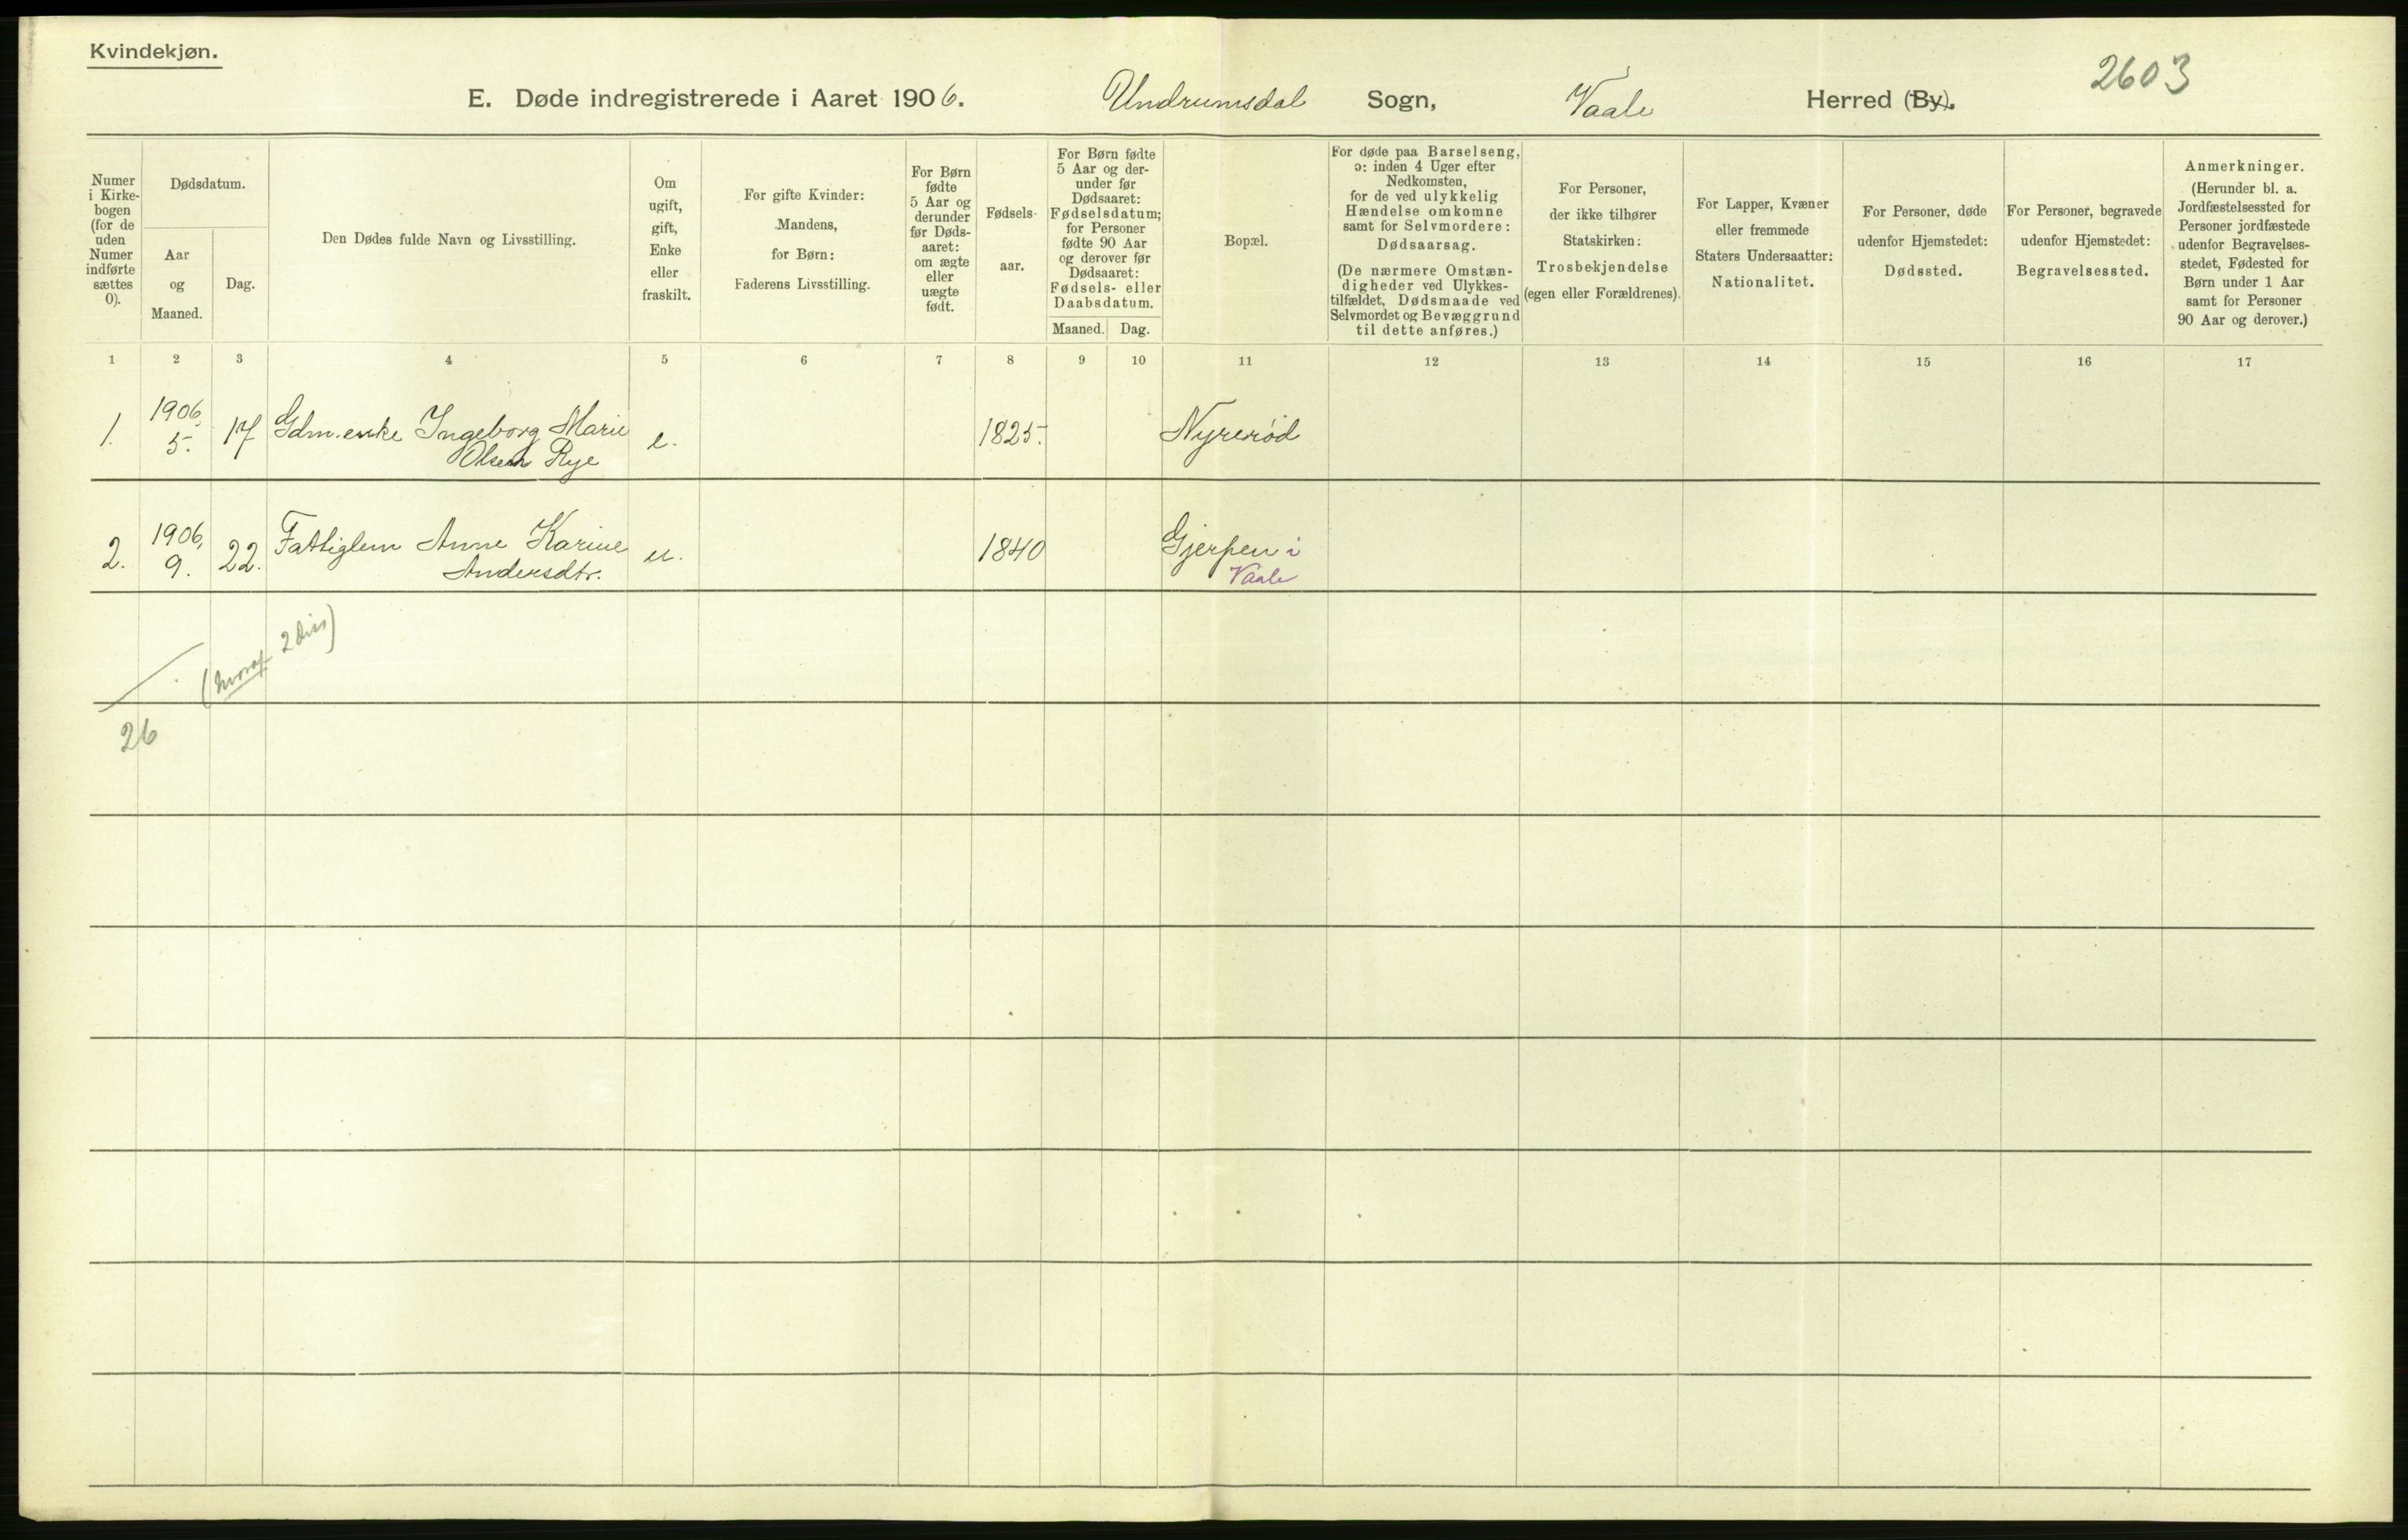 Kvindekjøn.
2603
E. Døde indregistrerede i Aaret 1906. Undrumsdal Sogn, Vaale Herred (By).
Numer
i Kirke-
bogen
(for de
uden
Numer
indførte
sættes
0).
Dødsdatum.
Aar
og
Maaned.
Dag.
Den Dødes fulde Navn og Livsstilling.
Om
ugift,
gift,
Enke
eller
fraskilt.
For gifte Kvinder:
Mandens,
for Børn:
Faderens Livsstilling.
For Børn
fødte
5 Aar og
derunder
før Døds-
aaret:
om ægte
eller
uægte
født.
Fødsels-
aar.
For Børn fødte
5 Aar og der-
under før
Dødsaaret:
Fødselsdatum;
for Personer
fødte 90 Aar
og derover før
Dødsaaret:
Fødsels- eller
Daabsdatum.
Maaned. Dag.
Bopæl.
For døde paa Barselseng,
ɔ: inden 4 Uger efter
Nedkomsten,
for de ved ulykkelig
Hændelse omkomne
samt for Selvmordere:
Dødsaarsag.
(De nærmere Omstæn-
digheder ved Ulykkes-
tilfældet, Dødsmaade ved
Selvmordet og Bevæggrund
til dette anføres.)
For Personer,
der ikke tilhører
Statskirken:
Trosbekjendelse
(egen eller Forældrenes).
For Lapper, Kvæner
eller fremmede
Staters Undersaatter:
Nationalitet.
For Personer, døde
udenfor Hjemstedet:
Dødssted.
For Personer, begravede
udenfor Hjemstedet:
Begravelsessted.
Anmerkninger.
(Herunder bl. a.
Jordfæstelsessted for
Personer jordfæstede
udenfor Begravelses-
stedet, Fødested for
Børn under 1 Aar
samt for Personer
90 Aar og derover.)
1 2 3 4 5 6 7 8 9 10 11 12 13 14 15 16 17
1. 1906, 5. 17 Gdm. enke Ingeborg Marie e. 1825. Nyrerød
Olsen Rye
2. 1906, 9. 22. Fattiglem Anne Karine u. 1840 Gjerpen i
Andersdtr. Vaale
(hvoraf 2 Diss)
26